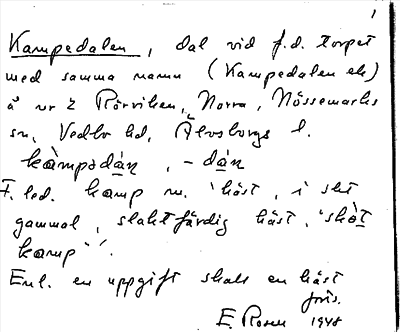 1
Kampedalen, dal vid f.d. torpet
med samma namn (Kampedalen ek)
å nr 2 Rörviken, Norra, Nössemarks
sn, Vedbo hd, Älvsborgs l.
kàmpədàn, -dán
F. led. kamp m. 'häst, i sht
gammal, slaktfärdig häst,
kamp''.
Enl. en uppgift skall en häst
E. Rosen 1948